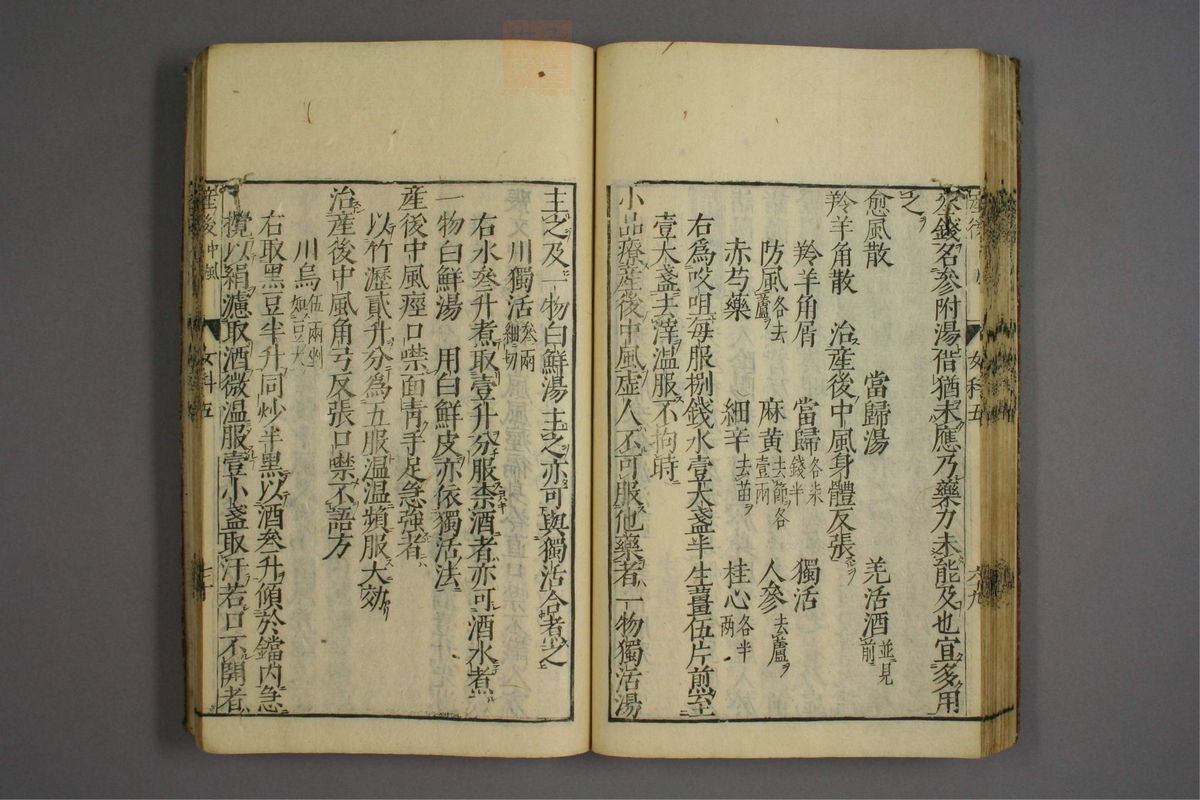 錢名參附湯借猶未應乃藥力未能及也宜多用
之
愈風散 當歸湯 羌活酒並見前
羚羊角散 治産後中風身體反張
羚羊角屑 當歸各柒錢半 獨活
防風各去蘆 麻黄去節各壹兩 人參去蘆
赤芍藥 細辛去苗 桂心各半兩
右爲㕮咀毎服捌錢水壹大盞半生薑伍片煎至
壹大盞去滓温服不拘時
小品療産後中風虚人不可服他藥者一物獨活湯
主之及一物白鮮湯主之亦可與獨活合者之
川獨活叁兩細切
右水叁升煮取壹升分服柰酒者亦可酒水煮
一物白鮮湯 用白鮮皮亦依獨活法
産後中風痙口噤面青手足急強者
以竹瀝貳升分爲五服温温頻服大効
治産後中風角弓反張口噤不語方
川烏伍兩剉如豆大
右取黑豆半升同炒半黑以酒叁升傾於鐺内急
攪以絹濾取酒微温服壹小盞取汗若口不開者
産後中風 女科五
女科五 六九